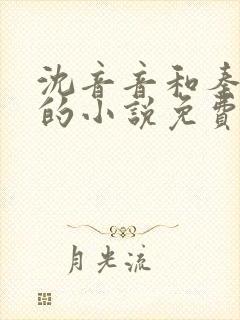 沈音音和秦
的小说免费
月光流